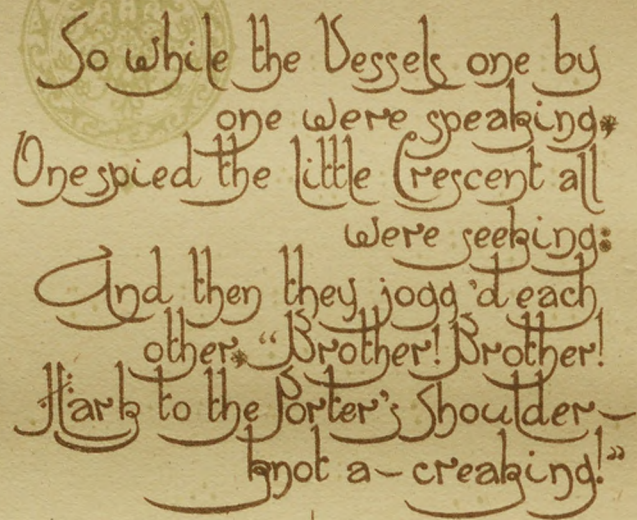 So while the Vessels one by
one were speaking,
One spied the little Crescent all
were seeking:
And then they jogg'd each
other, “Brother! Brother!
Hark to the Porter's Shoulder-
knot a-creaking!”